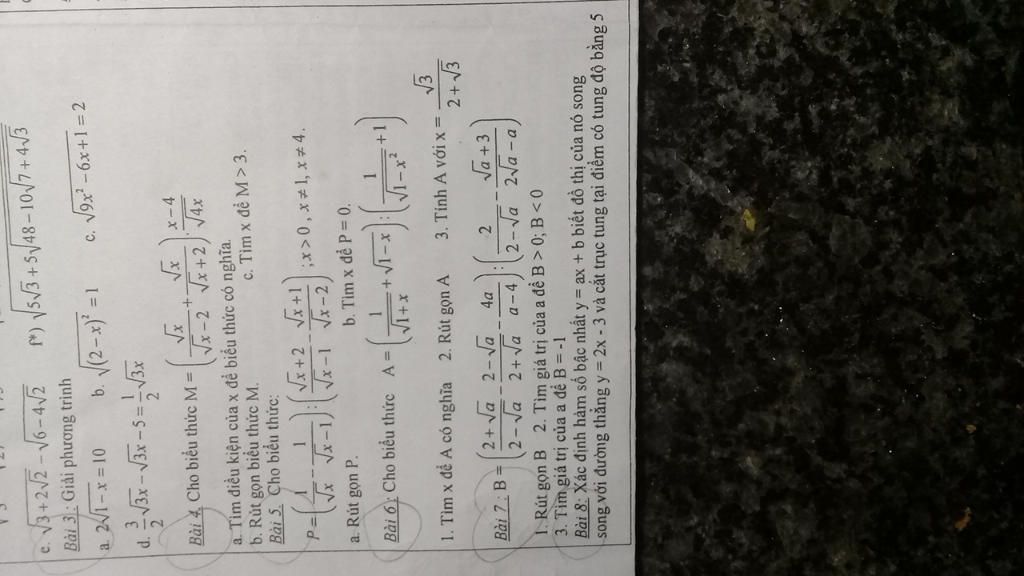 e. √(3+2√2) - √(6-4√2) f*) √(5√3+5√(48-10√(7+4√3)))
Bài 3: Giải phương trình
a. 2√(1-x) = 10 b. √((2-x)²) = 1 c. √(9x²-6x+1) = 2
d. 3/2 √3x - √3x - 5 = 1/2 √3x
Bài 4. Cho biểu thức M = (√x/(√x-2) + √x/(√x+2)) . (x-4)/√4x
a. Tìm điều kiện của x để biểu thức có nghĩa.
b. Rút gọn biểu thức M. c. Tìm x để M > 3.
Bài 5. Cho biểu thức:
P = (1/√x - 1/(√x-1)) : ((√x+2)/(√x-1) - (√x+1)/(√x-2)) ; x > 0 , x ≠ 1, x ≠ 4.
a. Rút gọn P. b. Tìm x để P = 0.
Bài 6: Cho biểu thức A = (1/√(1+x) + √(1-x)) : (1/√(1-x²) + 1)
1. Tìm x để A có nghĩa 2. Rút gọn A 3. Tính A với x = √3/(2+√3)
Bài 7 : B = ((2+√a)/(2-√a) - (2-√a)/(2+√a) - 4a/(a-4)) : (2/(2-√a) - (√a+3)/(2√a-a))
1. Rút gọn B 2. Tìm giá trị của a để B > 0; B < 0
3. Tìm giá trị của a để B = -1
Bài 8: Xác định hàm số bậc nhất y = ax + b biết đồ thị của nó song
song với đường thẳng y = 2x - 3 và cắt trục tung tại điểm có tung độ bằng 5